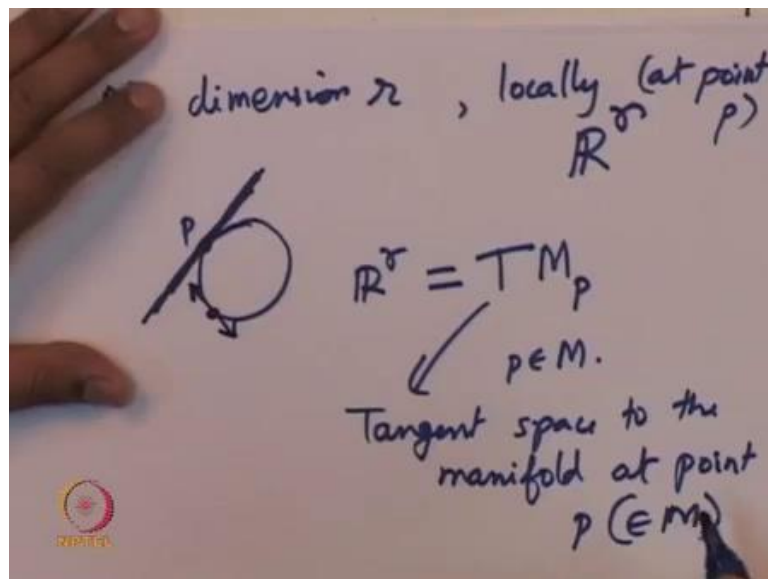 dimension r, locally (at point p)
ℝ^r
P
ℝ^r = TM_p
p ∈ M.
Tangent space to the
manifold at point
p (∈ M)
NPTEL